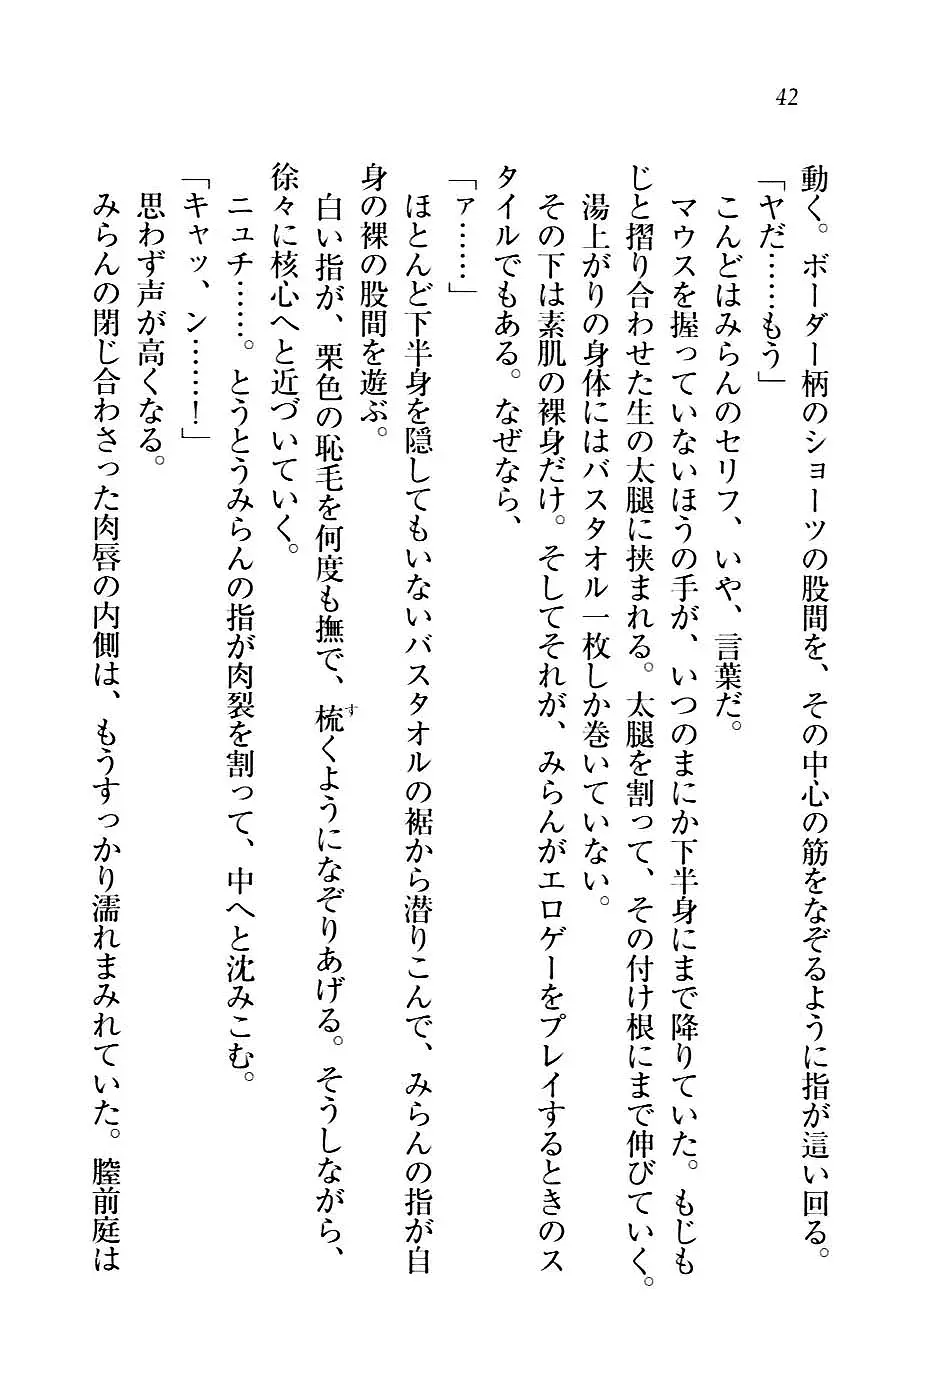 42
動く。ボーダー柄のショーツの股間を、その中心の筋をなぞるように指が這い回る。
「ヤだ……もう」
こんどはみらんのセリフ、いや、言葉だ。
マウスを握っていないほうの手が、いつのまにか下半身にまで降りていた。もじも
じと摺り合わせた生の太腿に挟まれる。太腿を割って、その付け根にまで伸びていく。
湯上がりの身体にはバスタオル一枚しか巻いていない。
その下は素肌の裸身だけ。そしてそれが、みらんがエロゲーをプレイするときのス
タイルでもある。なぜなら、
「ァ……」
ほとんど下半身を隠してもいないバスタオルの裾から潜りこんで、みらんの指が自
身の裸の股間を遊ぶ。
白い指が、栗色の恥毛を何度も撫で、梳くようになぞりあげる。そうしながら、
す
徐々に核心へと近づいていく。
ニュチ……。とうとうみらんの指が肉裂を割って、中へと沈みこむ。
「キャッ、ン……！」
思わず声が高くなる。
みらんの閉じ合わさった肉唇の内側は、もうすっかり濡れまみれていた。膣前庭は